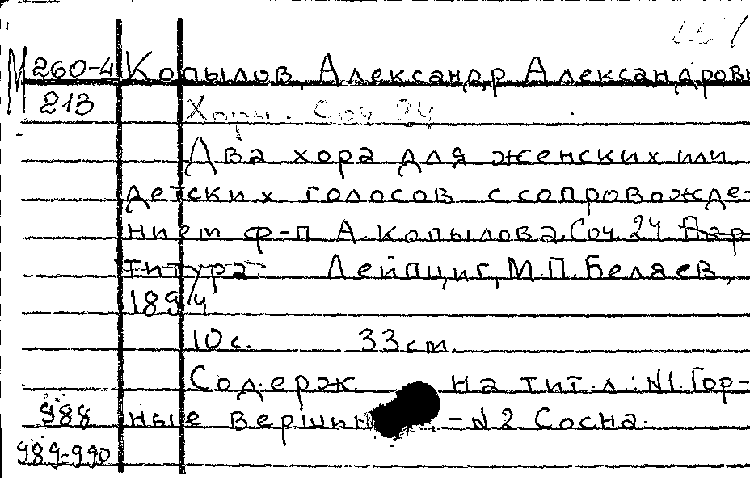 М 260-4 Копылов, Александр Александрови
213 Хоры. Соч 24
Два хора для женских или
детских голосов с сопровожде-
нием ф-п А. Копылова. Соч. 24 Пар-
титура Лейпциг, М.П. Беляев,
1894
10 с. 33 cm.
Содерж на тит. л.: N1. Гор-
988 ные вершин - N2 Сосна.
989-990